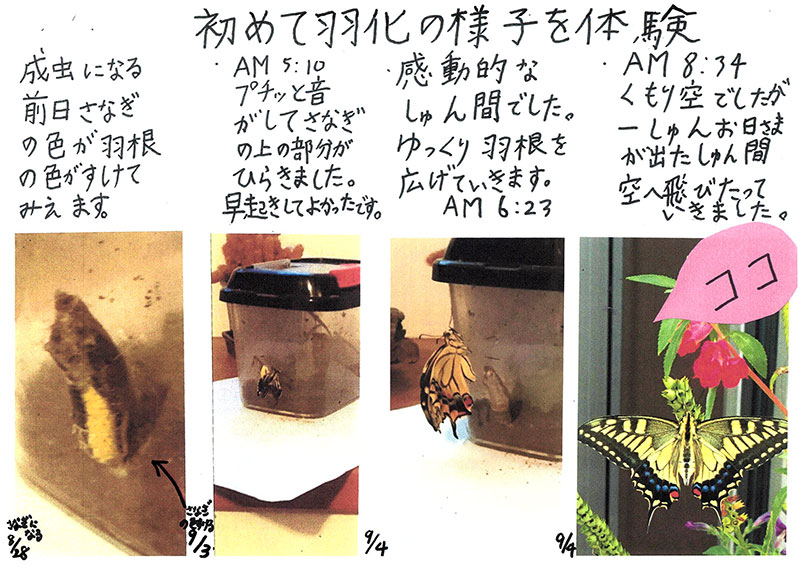 初めて羽化の様子を体験
成虫になる
前日さなぎ
の色が羽根
の色がすけて
みえます。
・AM 5:10
プチッと音
がしてさなぎ
の上の部分が
ひらきました。
早起きしてよかったです。
・感動的な
しゅん間でした。
ゆっくり羽根を
広げていきます。
AM 6:23
・AM 8:34
くもり空でしたが
一しゅんお日さま
が出たしゅん間
空へ飛びたって
いきました。
ココ
さなぎに
なる
8/28
さなぎ
9/3
9/4
9/4